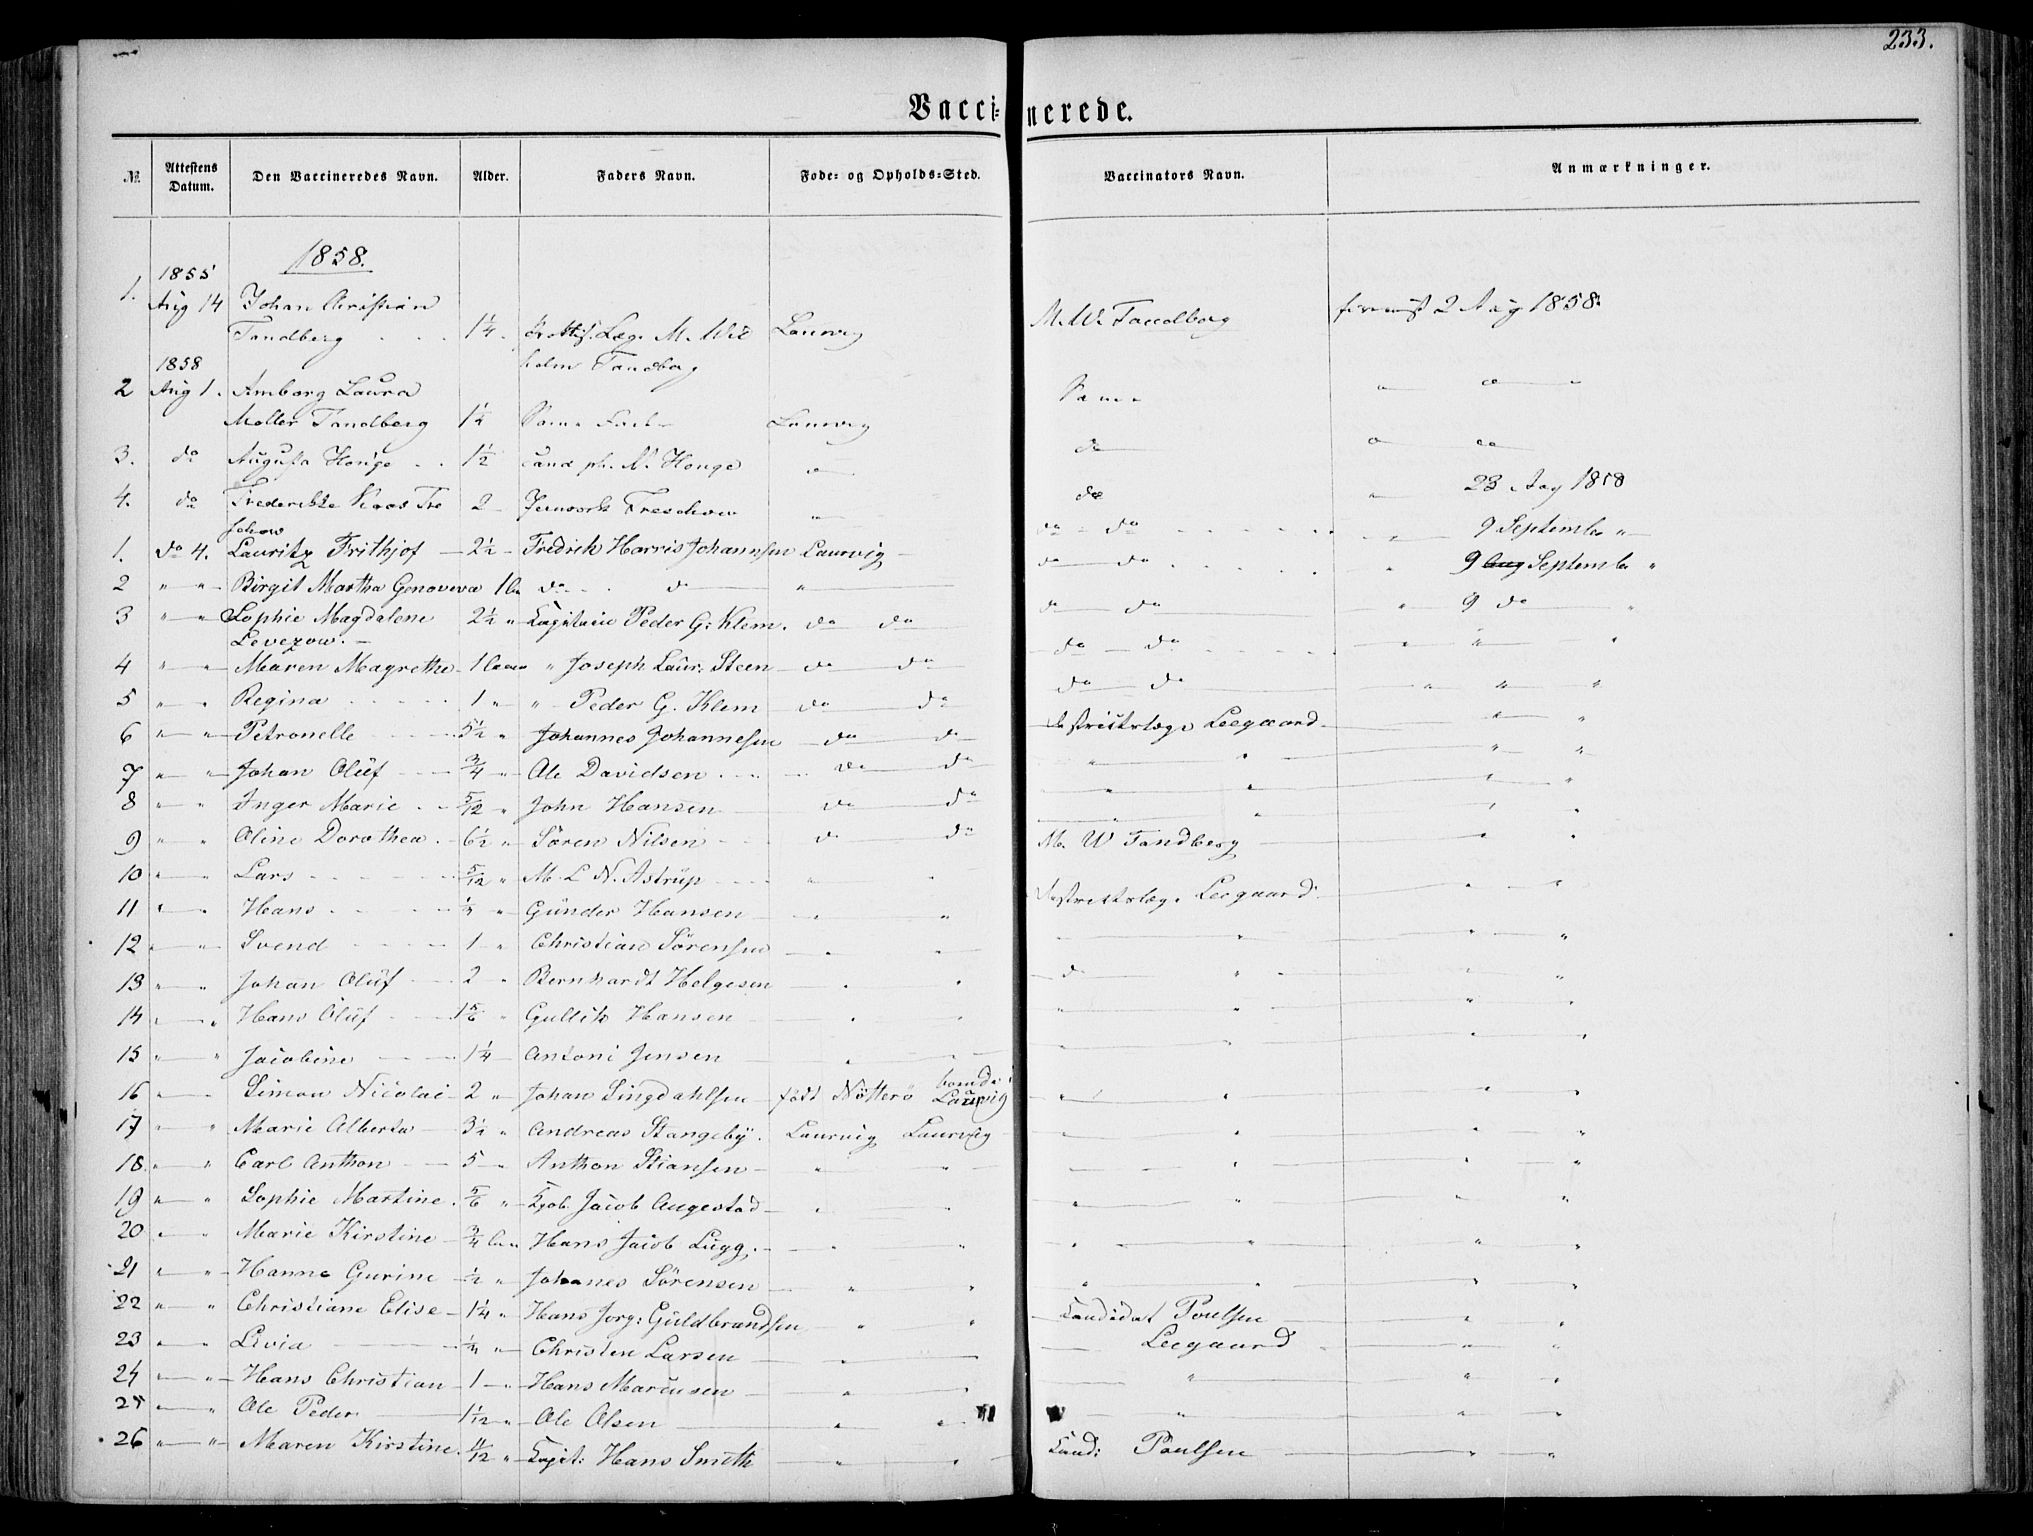 233.
Vacci=nerede.
№ Attestens Datum. Den Vaccineredes Navn. Alder. Faders Navn. Føde- og Opholds-Sted. Vaccinators Navn. Anmærkninger.
1855 1858.
1. Aug 14 Johan Christian
Tandberg 1¼ Læg. M. Wil Laurvig M. W. Tandberg 2 Aug 1858.
1858 helm Tandberg
2 Aug 1. Amborg Laura
Møller Tandberg 1¼ Samme Laurvig Samme " " "
3. do Augusta Houge 1½ Cand ph. N. Houge " do " "
4. do Frederikke Kaas Tre 2 Treschow " do " 23 Aug 1858
schow
1. do 4. Lauritz Frithjof 2½ Fredrik Harris Johannsen Laurvig do do 9 September "
2 " " Birgit Martha Genoveva 1 do do " do do " 9 Aug September "
3 " " Sophie Magdalene 2½ " Capitain Peder G: Klem. do do do do " 9 do "
Levezow.
4 " " Maren Magrethe 1 " Joseph Laur: Steen do do do do " "
5 " " Regina 1 " " Peder G. Klem do do do do " " "
6 " " Petronelle 5½ " Johannes Johannesen do do Leegaard " "
7 " " Johan Oluf ¾ " Ole Davidsen do do " " " "
8 " " Inger Marie 5/12 " John Hansen do do " " " "
9 " " Oline Dorothea 6½ " Søren Nilsen do do M. W Tandberg " "
10 " " Lars 5/12 " M. L N. Astrup " " Leegaard " "
11 " " Hans " Günder Hansen " " " " "
12 " " Svend 1 " Christian Sørensen " " " " "
13 " " Johan Oluf 2 " Bernhardt Helgesen " " do " " "
14 " " Hans Oluf 1 5/6 " Gullik Hansen " " " " " "
15 " " Jacobine 1¼ Antoni Jensen " " " " " "
16 " " Simon Nicolai 2 " Johan Lingdahlsen født Nøtterø boende i Laurvig " " " "
17 " " Marie Alberta 3½ " Andreas Stangeby. Laurvig Laurvig " " " "
18. " " Carl Anthon 5 " Anthon Stiansen " " " " " "
19 " " Sophie Martine 5/6 " Jacob Augestad " " " " " "
20 " " Marie Kirstine ¾ Hans Jacob Lugg. " " " " " "
21 " " Hanne Gurine ½ " Johanes Sørensen " " " " " "
22 " " Christiane Elise 1¼ " Hans Jorg: Guldbrandsen " " Candidat Poulsen " "
23 " " Livia " Christen Larsen " " Leegaard " "
24 " " Hans Christian 1 " Hans Marcusen " " " " "
25 " " Ole Peder 1 1/12 " Ole Olsen " " " " "
26 " " Maren Kirstine 11/12 " Capit: Hans Smith " " Cand: Poulsen " "